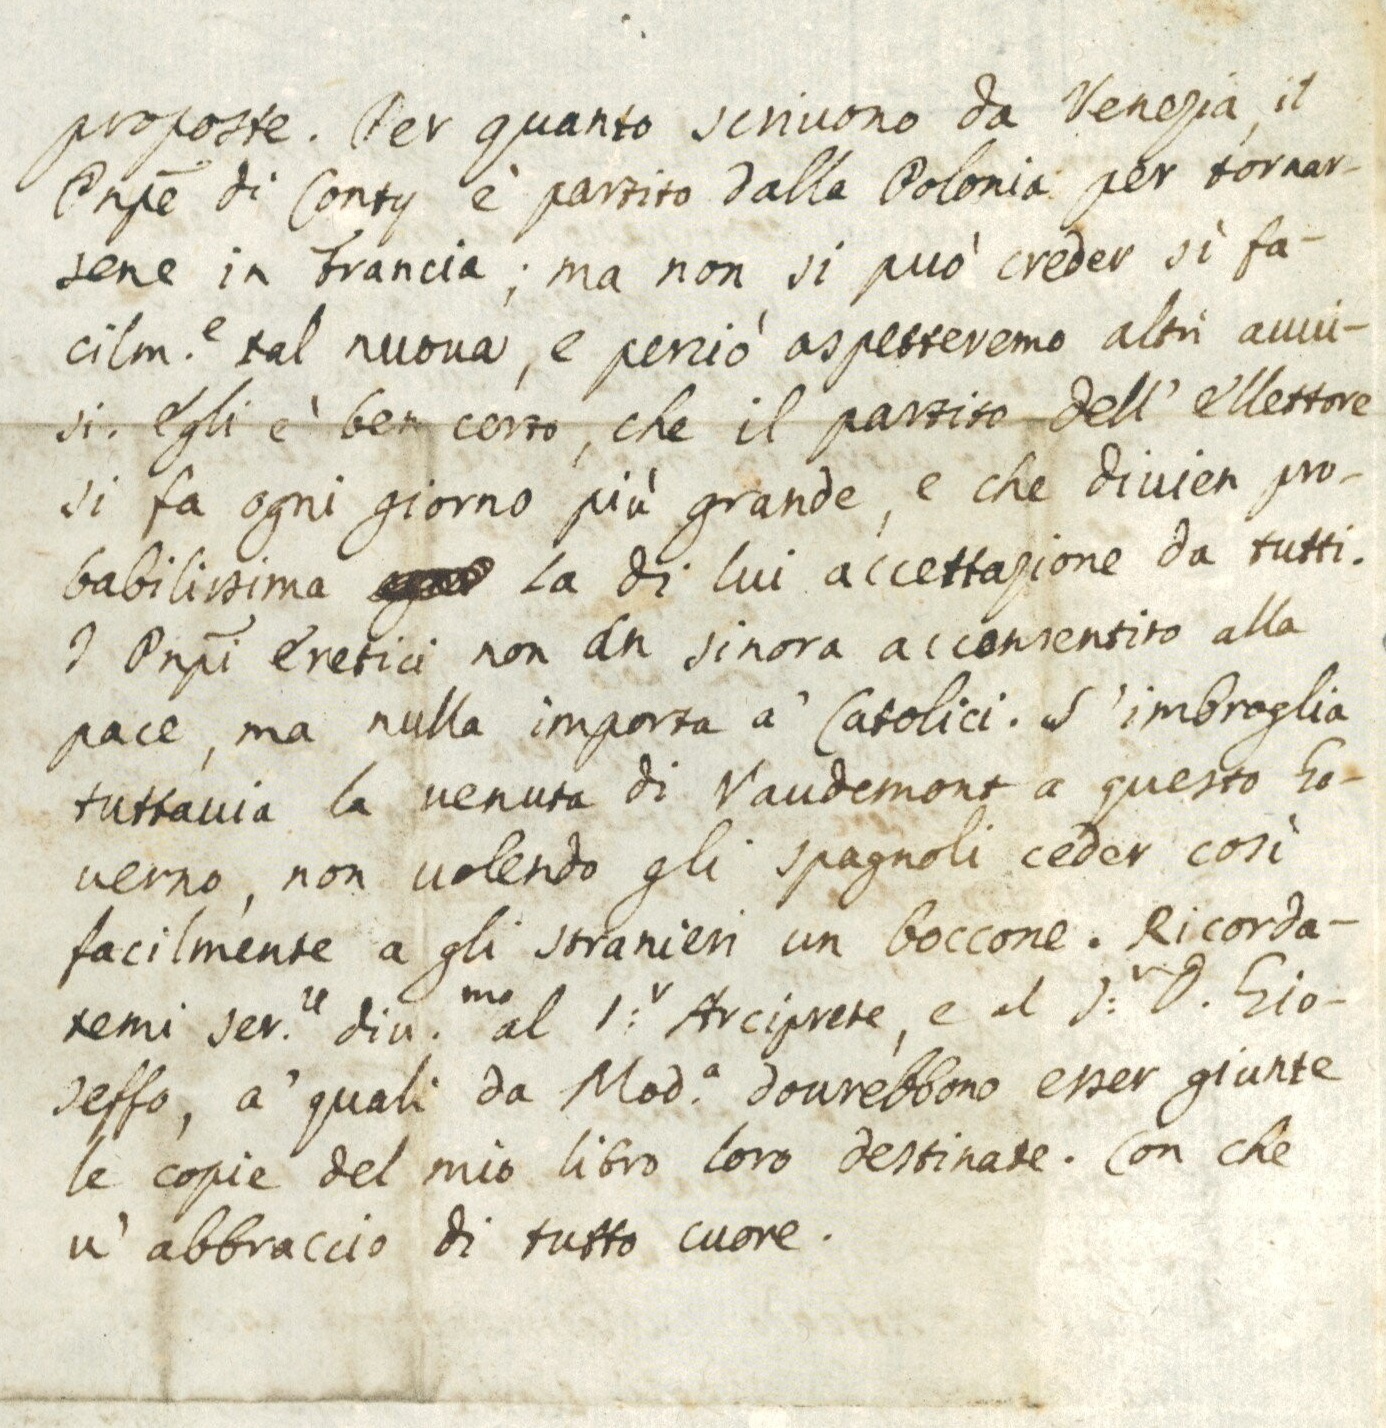 proposte. Per quanto scriuono da Venezia, il
Pnp̃e di Conty è partito dalla Polonia per tornar-
sene in Francia; ma non si può creder sì fa-
cilm.e tal nuoua, e perciò aspetteremo altri auui-
si. Egli è ben certo, che il partito dell' Ellettore
si fa ogni giorno più grande, e che diuien pro-
babilissima la di lui accettazione da tutti.
I Pnp̃i Eretici non àn sinora acconsentito alla
pace, ma nulla importa a' Catolici. S'imbroglia
tuttauia la uenuta di Vaudemont a questo Go-
uerno, non uolendo gli spagnoli ceder così
facilmente a gli stranieri un boccone. Ricorda-
temi ser.re diu.mo al S:r Arciprete, e al S:r D. Gio-
seffo, a' quali da Mod.a dourebbono esser giunte
le copie del mio libro loro destinate. Con che
u' abbraccio di tutto cuore.